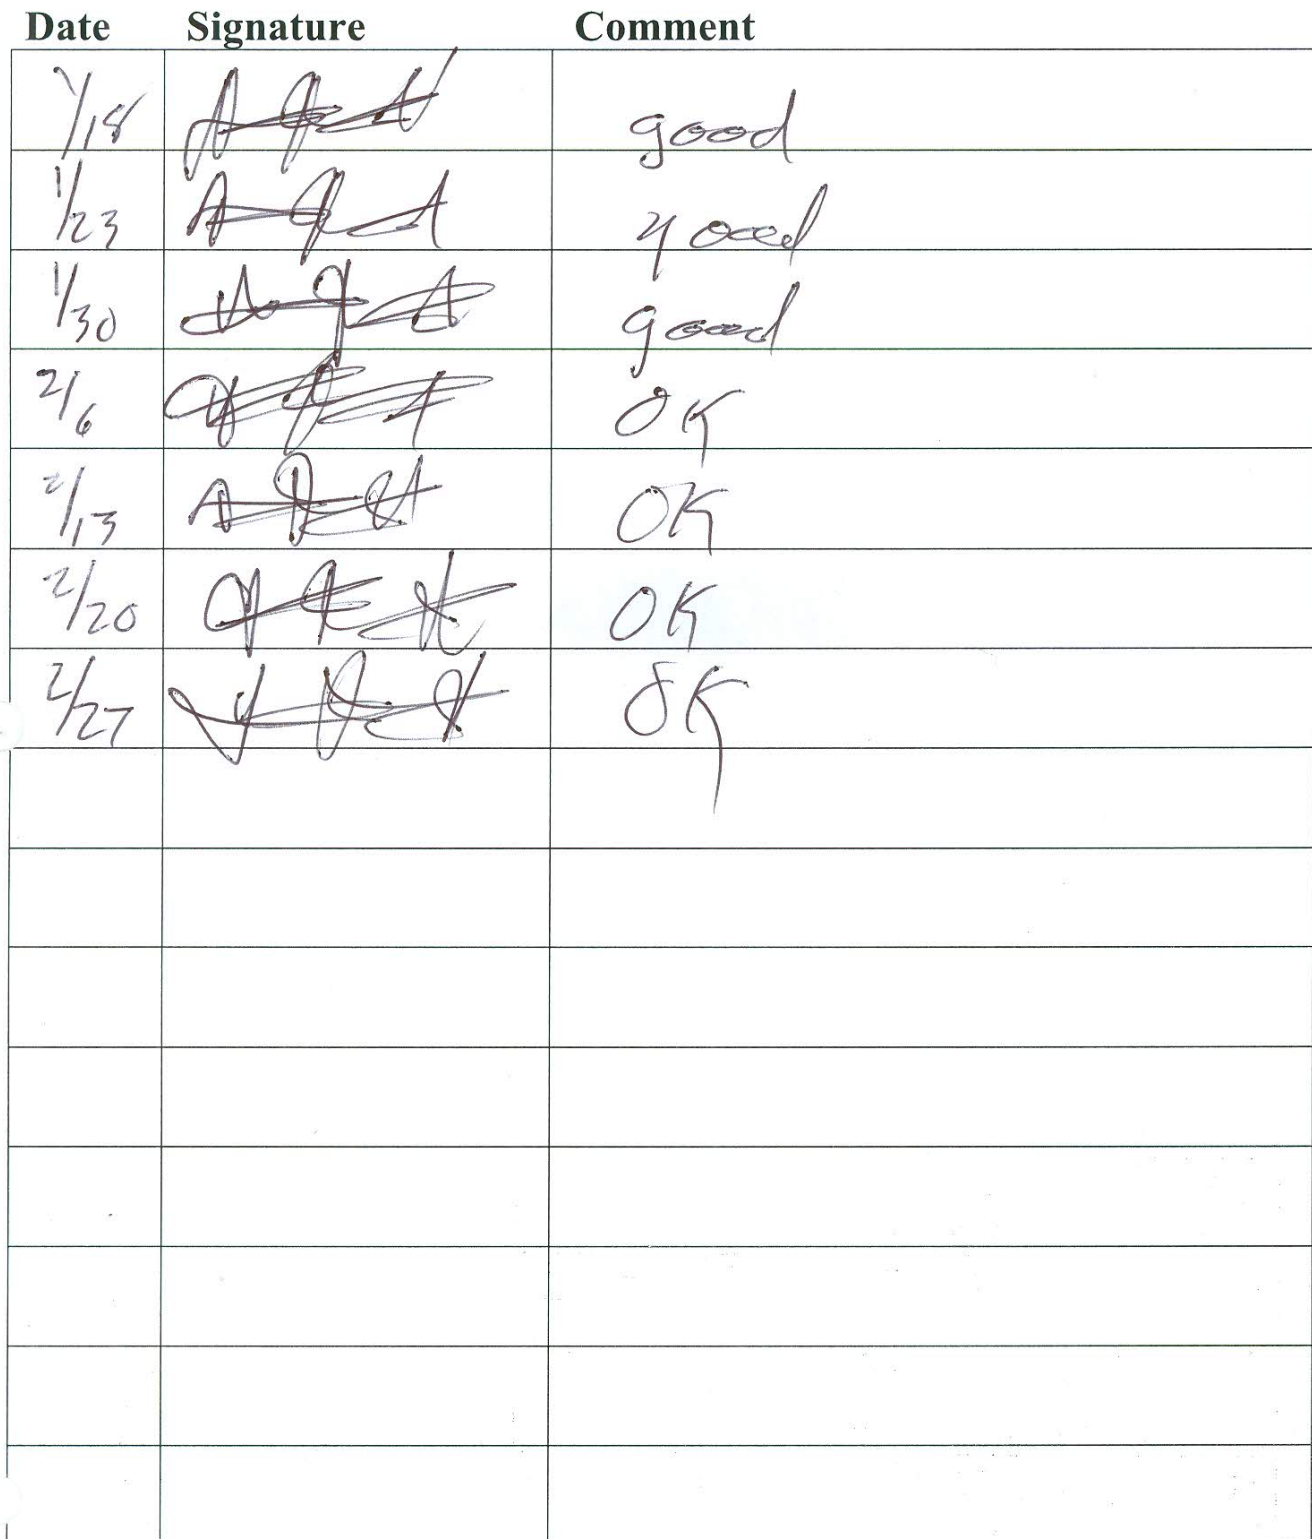 Date Signature Comment
1/18 good
1/23 good
1/30 good
2/6 OK
2/13 OK
2/20 OK
2/27 OK